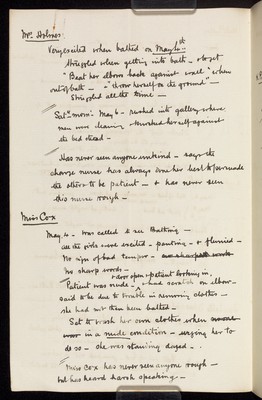 Mrs Holmes.
Very excited when bathed on May 4th
Struggled when getting into bath - & to get
"Beat her elbows back against wall" when
out of bath - & "threw herself on the ground" -
Struggled all the time -
Satn morng May 6 - rushed into gallery where
men were cleaning - knocked herself against
the bed stead -
Has never seen anyone unkind - says the
charge nurse has always done her best to persuade
the others to be patient - & has never seen
this nurse rough -
Miss Cox
May 4 - was called to see Bathing -
all the girls were excited - panting - & flurried -
No sign of bad temper -
no sharp words -
& door open & patient looking in,
Patient was nude - & had scratch on elbow -
said to be due to trouble in removing clothes -
she had not then been bathed -
Sat to wash her own clothes when
in a nude condition - urging her to
do so - she was standing dazed -
Miss Cox has never seen anyone rough -
but has heard harsh speaking -